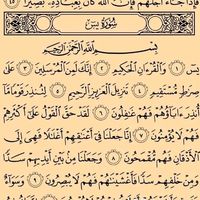 فَإِذَا جَاءَ أَجَلُهُمْ فَإِنَّ اللَّهَ كَانَ بِعِبَادِهِ بَصِيرًا ٤٥
سُورَةُ يسٓ
بِسْمِ اللَّهِ الرَّحْمَٰنِ الرَّحِيمِ
يسٓ ١ وَالْقُرْءَانِ الْحَكِيمِ ٢ إِنَّكَ لَمِنَ الْمُرْسَلِينَ ٣ عَلَىٰ
صِرَٰطٍ مُّسْتَقِيمٍ ٤ تَنزِيلَ الْعَزِيزِ الرَّحِيمِ ٥ لِتُنذِرَ قَوْمًا مَّا
أُنذِرَ ءَابَاؤُهُمْ فَهُمْ غَٰفِلُونَ ٦ لَقَدْ حَقَّ الْقَوْلُ عَلَىٰ أَكْثَرِهِمْ
فَهُمْ لَا يُؤْمِنُونَ ٧ إِنَّا جَعَلْنَا فِي أَعْنَٰقِهِمْ أَغْلَٰلًا فَهِيَ إِلَى
الْأَذْقَانِ فَهُم مُّقْمَحُونَ ٨ وَجَعَلْنَا مِن بَيْنِ أَيْدِيهِمْ سَدًّا
وَمِنْ خَلْفِهِمْ سَدًّا فَأَغْشَيْنَٰهُمْ فَهُمْ لَا يُبْصِرُونَ ٩ وَسَوَاءٌ